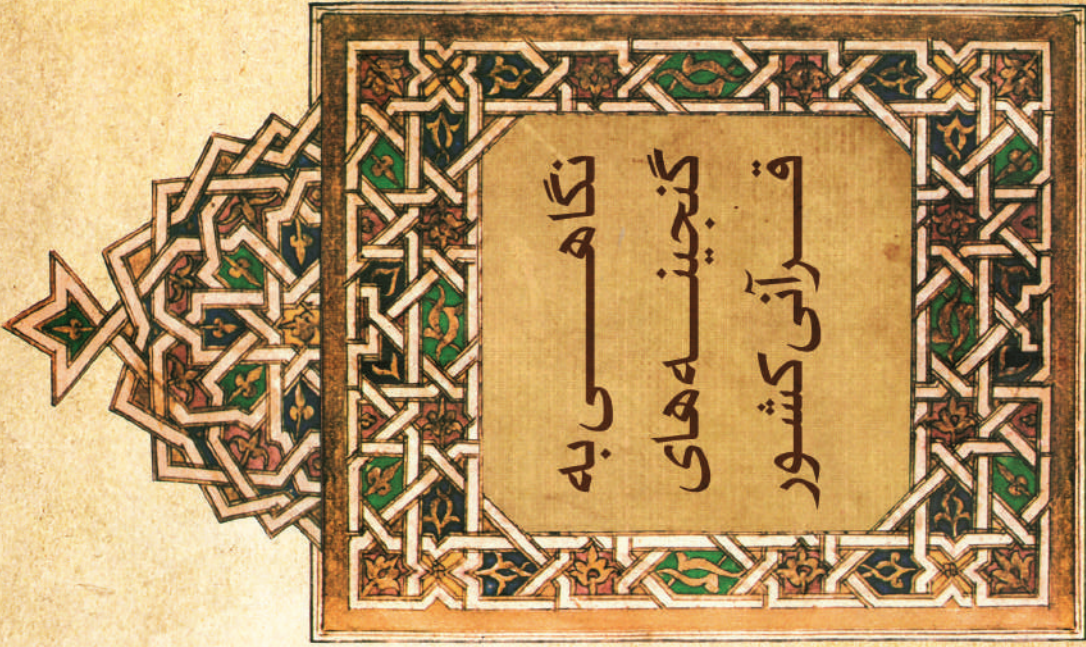 نگاهی به
گنجینه‌های
قرآنی کشور